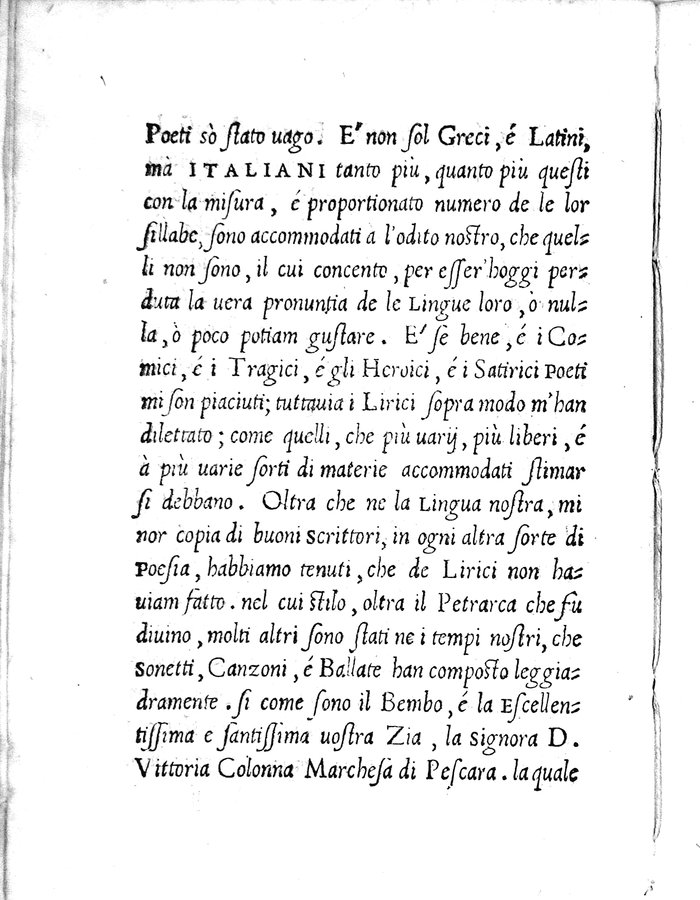 Poeti sò ſtato uago. E' non ſol Greci, é Latini,
mà ITALIANI tanto più, quanto più queſti
con la miſura, é proportionato numero de le lor
ſillabe, ſono accommodati a l'odito noſtro, che quel⸗
li non ſono, il cui concento, per eſſer'hoggi per⸗
duta la uera pronuntia de le Lingue loro, ò nul⸗
la, ò poco potiam guſtare. E' ſe bene, é i Co⸗
mici, é i Tragici, é gli Heroici, é i Satirici Poeti
mi ſon piaciuti; tuttauia i Lirici ſopra modo m'han
dilettato; come quelli, che più uarij, più liberi, é
à più uarie ſorti di materie accommodati ſtimar
ſi debbano. Oltra che ne la Lingua noſtra, mi
nor copia di buoni Scrittori, in ogni altra ſorte di
Poeſia, habbiamo tenuti, che de Lirici non ha⸗
uiam fatto. nel cui ſtilo, oltra il Petrarca che fù
diuino, molti altri ſono ſtati ne i tempi noſtri, che
Sonetti, Canzoni, é Ballate han compoſto leggia⸗
dramente. ſi come ſono il Bembo, é la Eſcellen⸗
tiſſima e ſantiſſima uoſtra Zia, la Signora D.
Vittoria Colonna Marcheſa di Peſcara. la quale